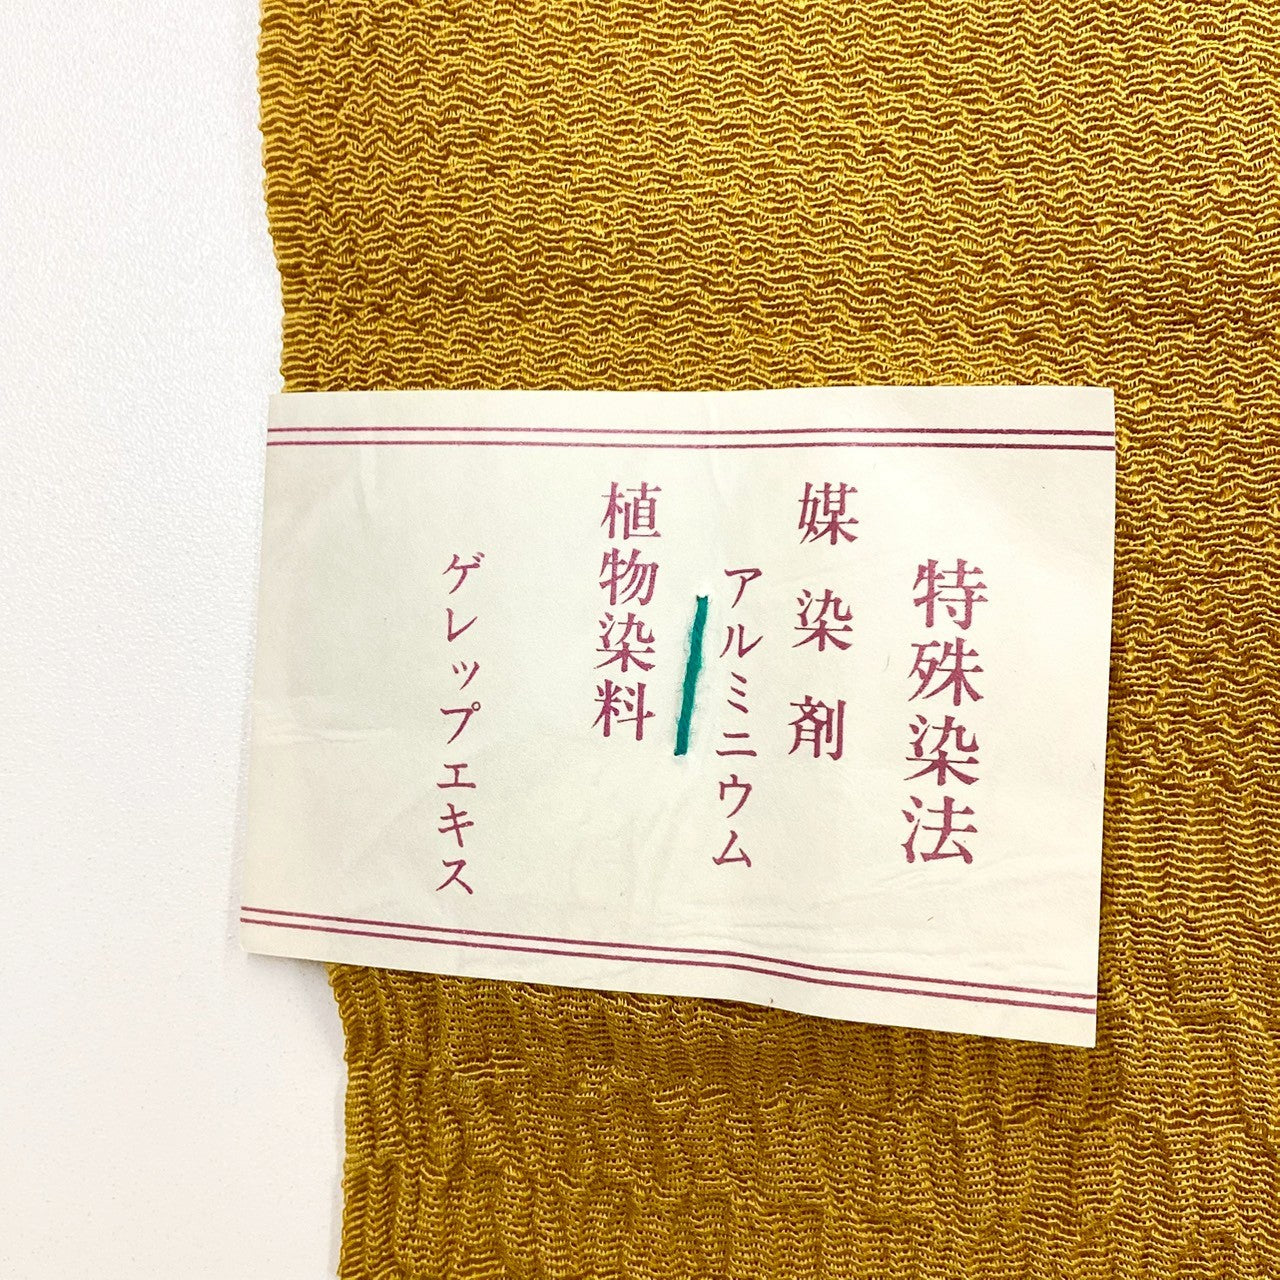 特殊染法
媒染剤
アルミニウム
植物染料
ゲレップエキス